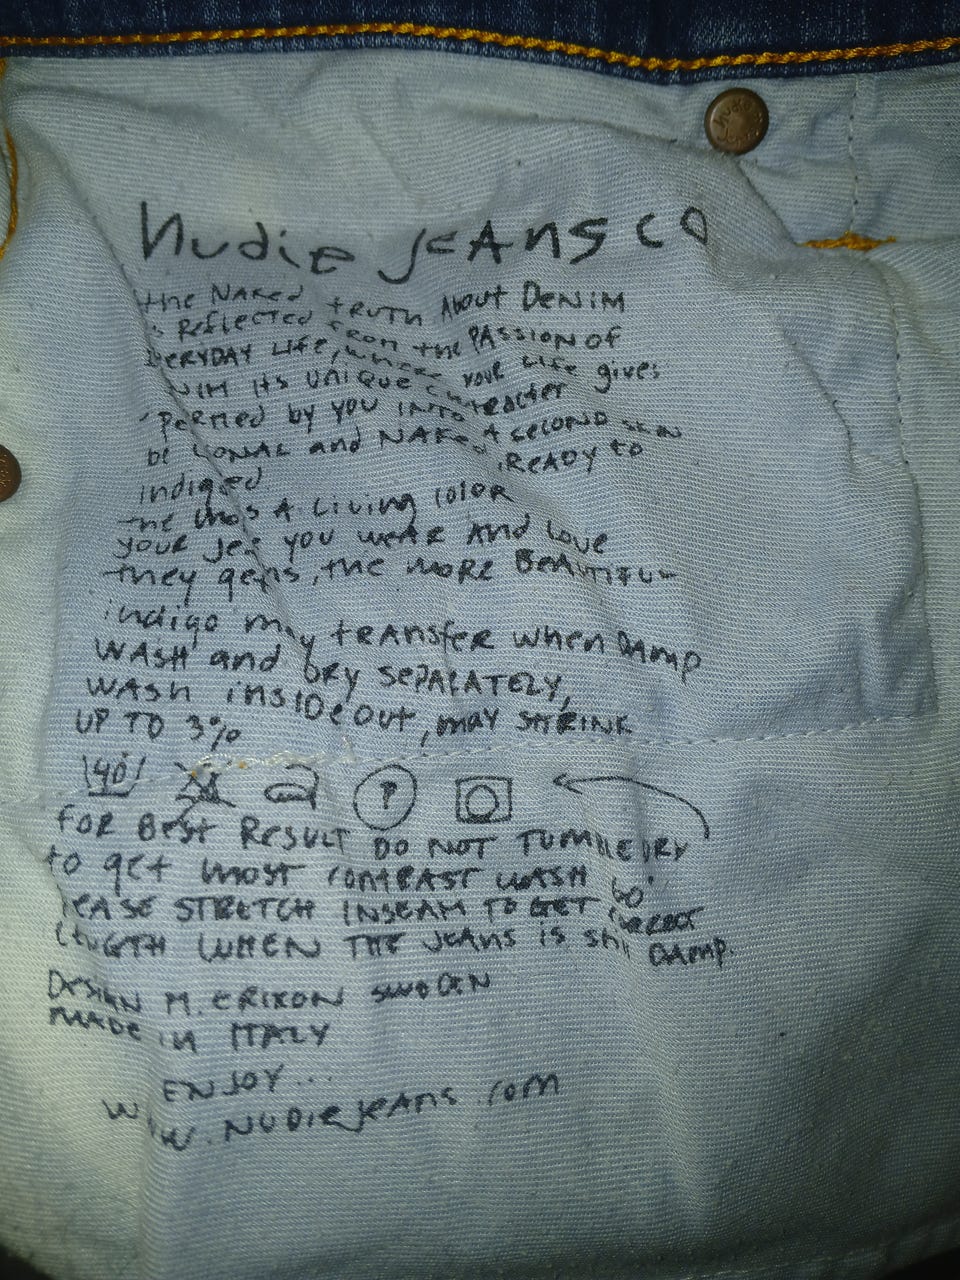 nudie
Nudie JeANS CO
the NAKED tRUTH ABout DENIM
is ReflecTED from the PASSION OF
EVERYDAY LIFE, where your LIFE gives
NIM its UNIQUE CHARACter
PeRmed by YOU INTO A SECOND SKIN
be SONAL and NAKed, READY to
indiged
the has A Living COLOR
YOUR Je YOU WEAR AND LOVE
they gens, the MORE BEAUTIFUL
indigo may tRANSfeR WHEN DAMP
WASH and DRY SEPARATELY,
WASH INSIDEOUT, MAY SHRINK
UP TO 3%
40°
P
FOR BeSt ReSULT DO NOT TUMBLE DRY
to get MOST CONTRAST WASH 60°
EASE STRETCH INSEAM TO GET CORRECT
LENGTH WHEN THE JEANS IS still DAMP.
DESIGN M. ERIXON SWEDEN
MADE IN ITALY
ENJOY...
WWW.NUDIEJEANS.COM